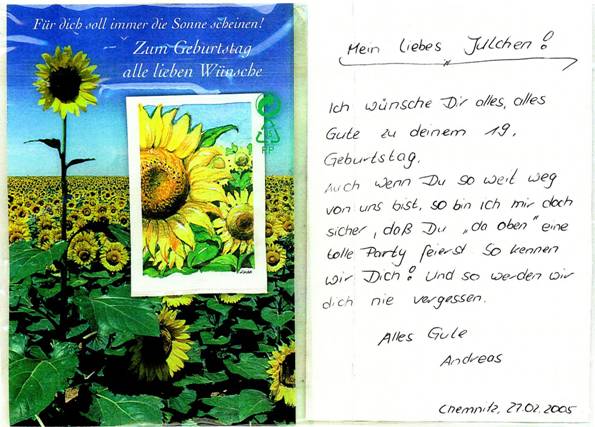 Für dich soll immer die Sonne scheinen!
Zum Geburtstag
alle lieben Wünsche
PP
Mein liebes Julchen!
Ich wünsche Dir alles, alles
Gute zu deinem 19.
Geburtstag.
Auch wenn Du so weit weg
von uns bist, so bin ich mir doch
sicher, daß Du "da oben" eine
tolle Party feierst. So kennen
wir Dich! Und so werden wir
dich nie vergessen.
Alles Gute
Andreas
Chemnitz, 27.02.2005